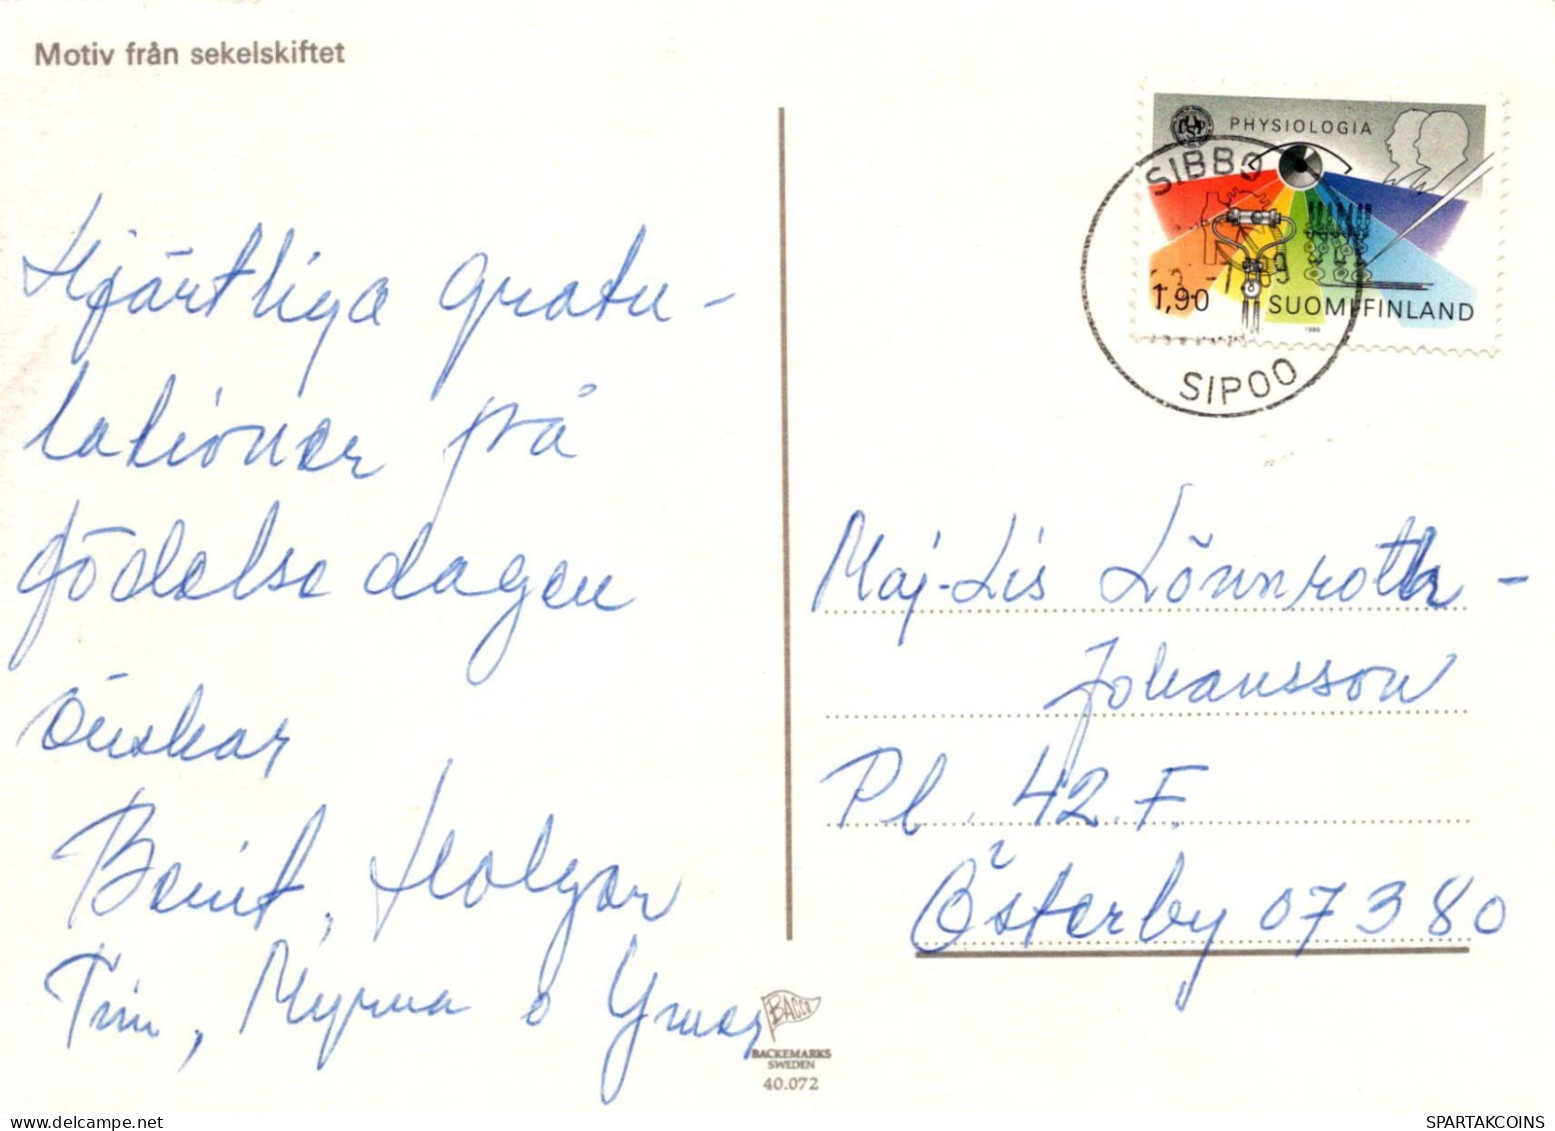 Motiv från sekelskiftet
Hjärtliga gratu-
lationer på
födelsedagen
önskar
Bernt, Holger
Tim, Myrna o Ymer
PHYSIOLOGIA
1,90
SUOMI FINLAND
1989
SIBBO
SIPOO
Maj-Lis Lönnroth-
Johansson
Pl. 42 F.
Österby 07380
BACCO
BACKEMARKS
SWEDEN
40.072
delcampe.net
SPARTAKCOINS